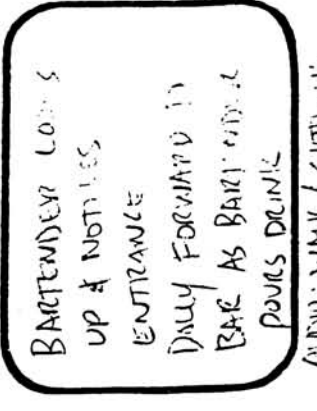 BARTENDER LOOKS
UP & NOTICES
ENTRANCE
DOLLY FORWARD TO
BAR AS BARTENDER
POURS DRINK